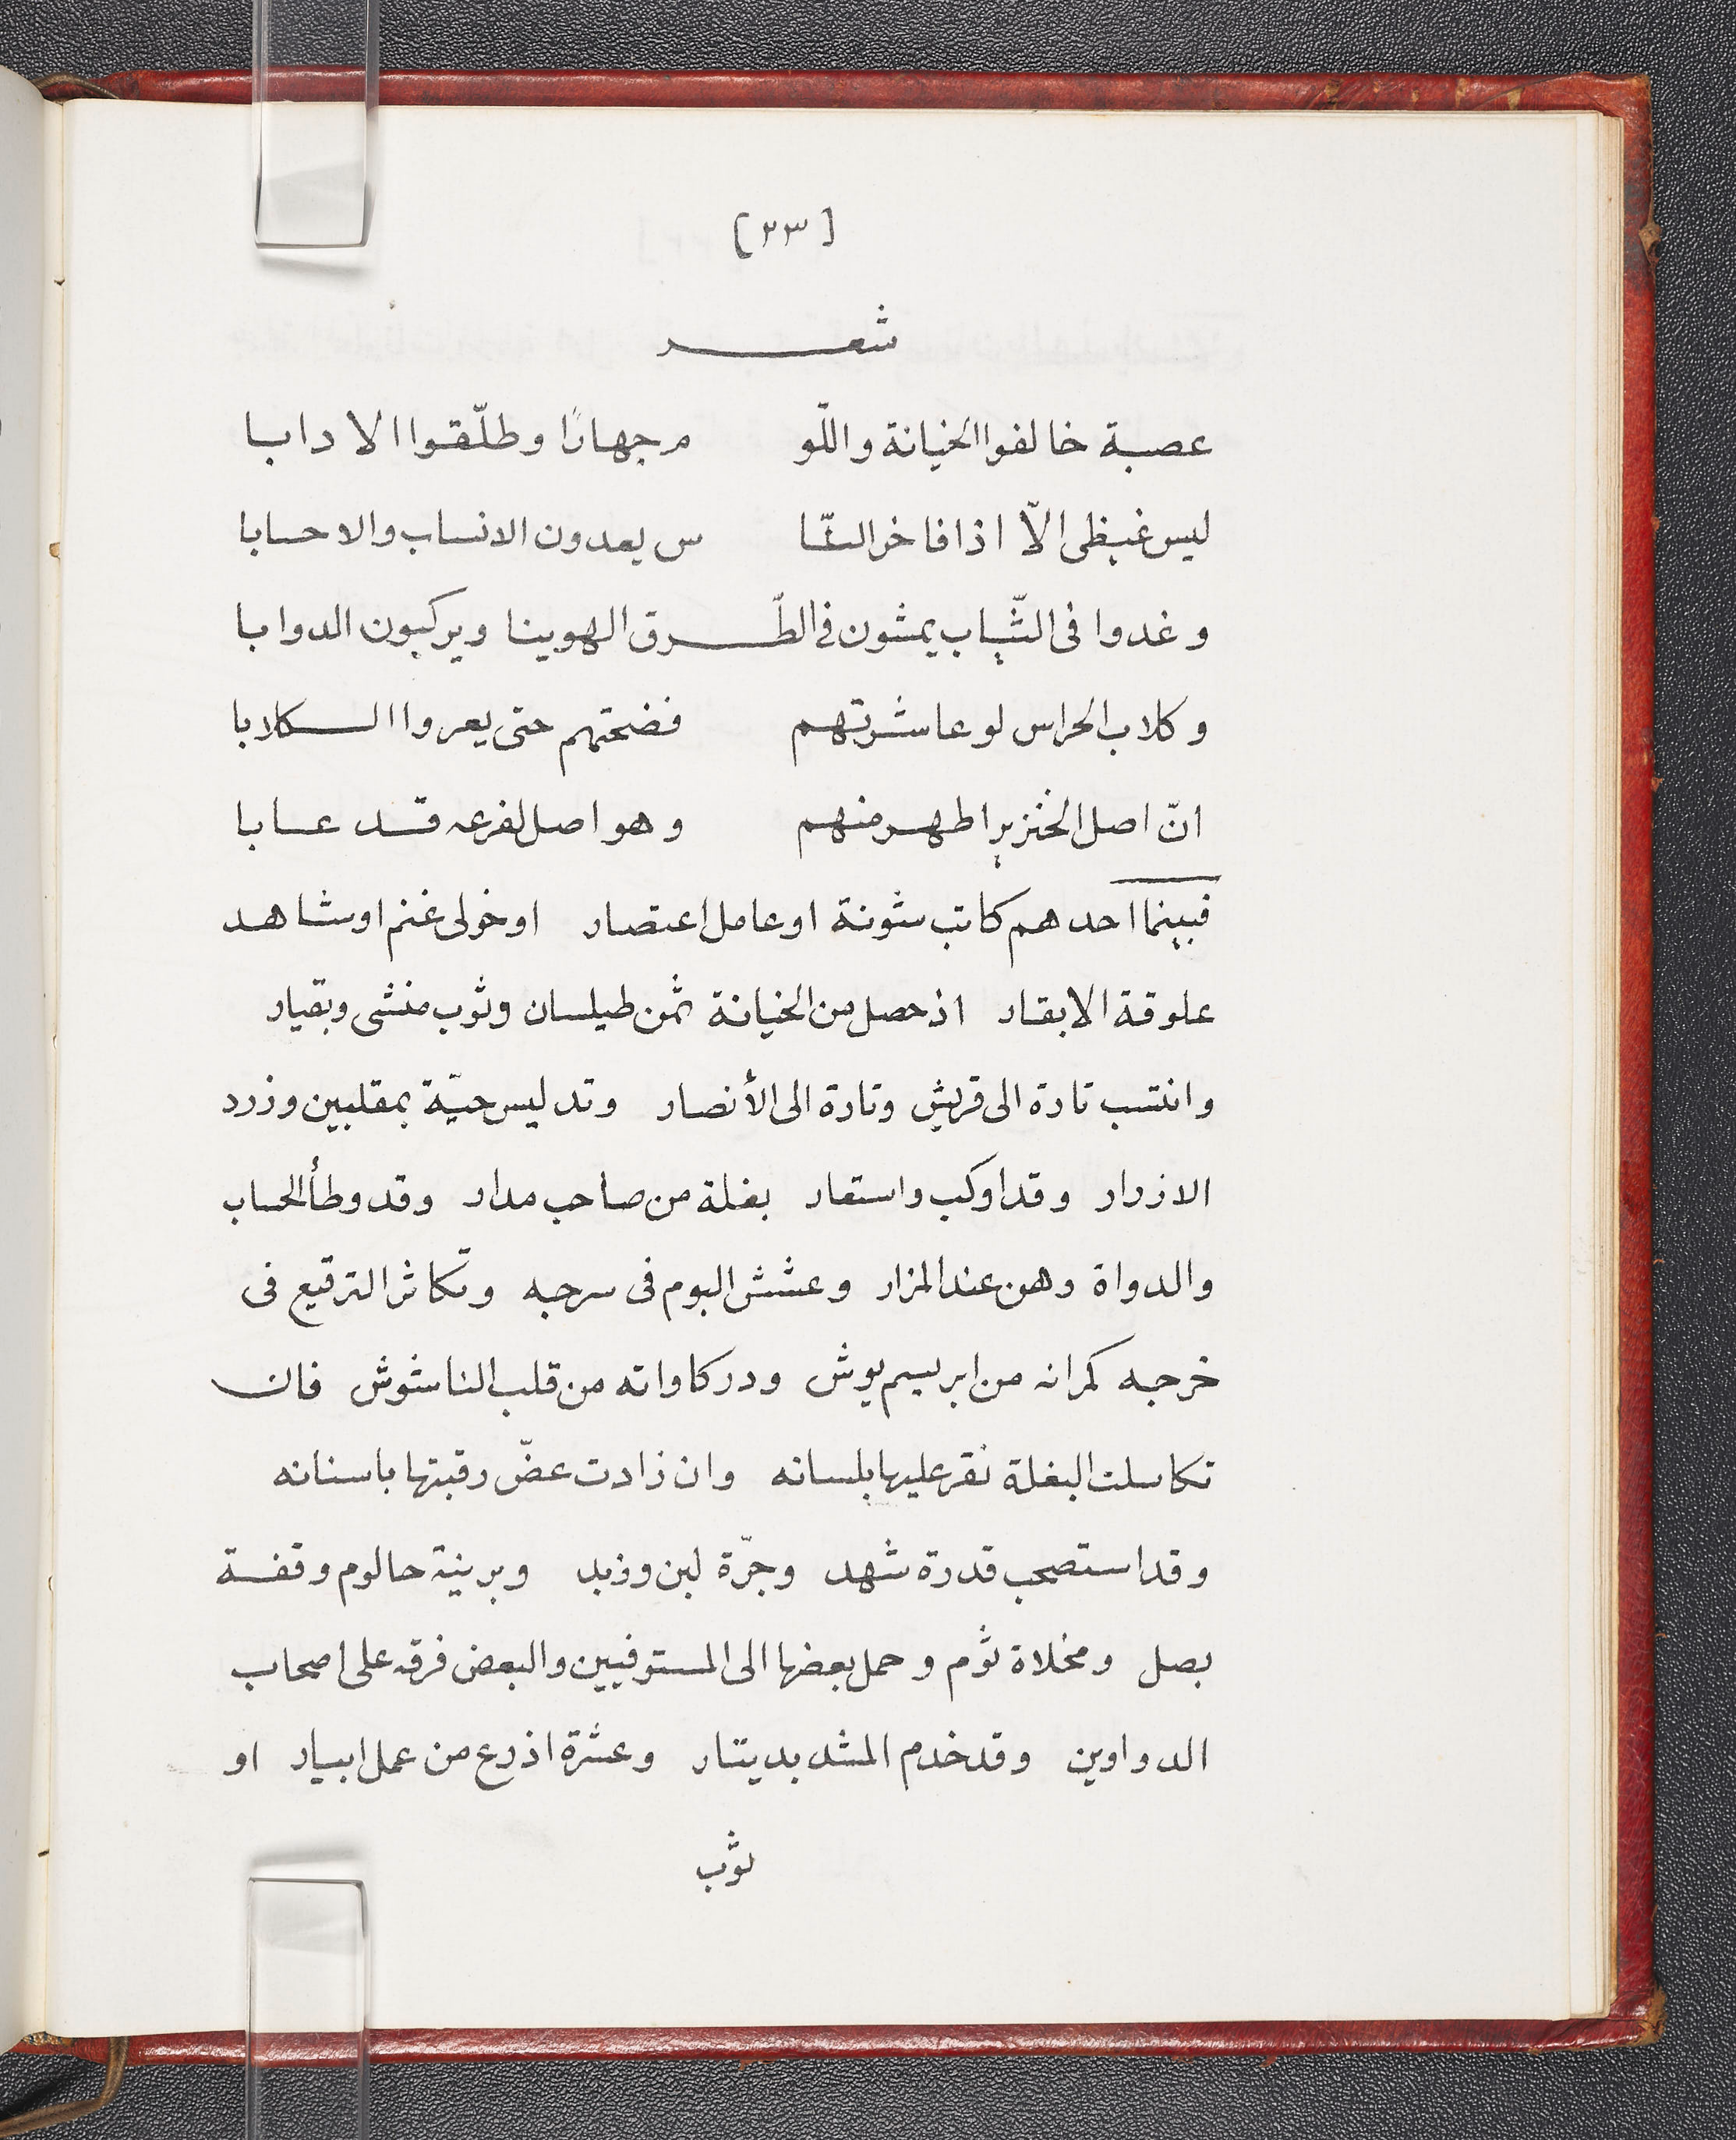 [٢٣]
شعر
عصبة خالفوا الخيانة واللّو م جهارًا وطلّقوا الادابا
ليس غيظى الاّ اذا فاخر النّا س يعدون الانساب والاحسابا
وغدوا فى الثّياب يمشون فى الطّرق الهوينا ويركبون الدوابا
وكلاب الحراس لو عاشرتهم فضحتهم حتى يعروا الكلابا
انّ اصل الخنزير اطهر منهم وهو اصل لفرعه قد عابا
فبينما احدهم كاتب شونة او عامل اعتصار او خولى غنم او شاهد
علوقة الابقار اذ حصل من الخيانة ثمن طيلسان وثوب منشى وبقيار
وانتسب تارة الى قريش وتارة الى الأنصار وتد ليس حيّة بمقلبين وزرد
الازرار وقد اوكب واستعار بغلة من صاحب مدار وقد وطأ الحساب
والدواة وهن عند المزار وعشش البوم فى سرجه وتكاثر الترقيع فى
خرجه كمرانه من ابريسم يوش ودركاواته من قلب الناشوش فان
تكاسلت البغلة نقر عليها بلسانه وان زادت عضّ رقبتها باسنانه
وقد استصحب قدرة شهد وجرّة لبن وزبد وبرنية حالوم وقفة
بصل ومخلاة ثوم وحمل بعضها الى المستوفيين والبعض فرقه على اصحاب
الدواوين وقد خدم المشد بدينار وعشرة اذرع من عمل ابيار او
ثوب